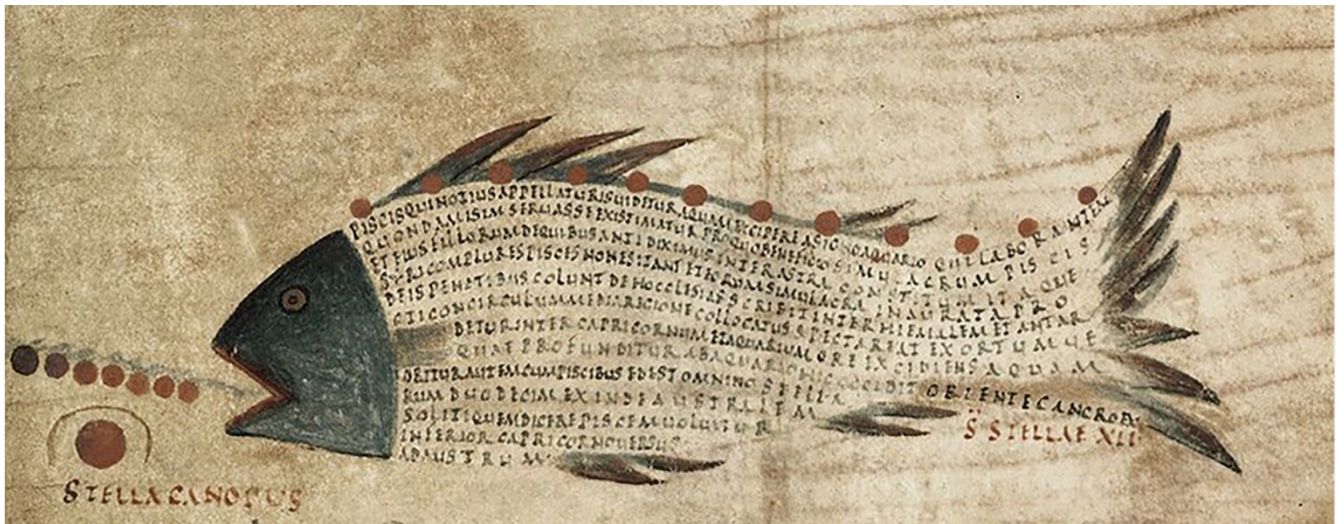 PISCISQUINOTIUSAPPELLATURISUIDETURAQUAMEXCIPEREASIGNOAQUARIO QUILABORANTEM
QUONDAMISIMSERUASSEEXISTIMATURPROQUOBENEFICIOSIMULACRUMPISCIS
ETEIUSFILLORUMDEQUIBUSANTEDIXIMUSINTERASTRACONSTITUITITAQUE
SYRICOMPLURESPISCESNONESITANTETEORUMSIMULACRAINAURATAPRO
DEISPENATIBUSCOLUNTDEHOCCLESIASSCRIBITINTERHIEMALEMETANTAR
CTICONCIRCULUMMEDIAREGIONECOLLOCATUSSPECTAREATEXORTUMUE
DETURINTERCAPRICORNUMETAQUARIUMOREEXCIDIENSAQUAM
QUAEPROFUNDITURABAQUARIOHICOCCIDIT OBLENTECANCROEX
ORITURAUTEMCUMPISCIBUSEDESTOMNINOSTELLA
RUMDUODECIMEXINDEAUSTRALEM
SOLITIQUEMDICEREPISCEMUOLUITUR
INFERIORCAPRICORNOUERSUS
ADAUSTRUM
S STELLAE XII
STELLACANOPUS